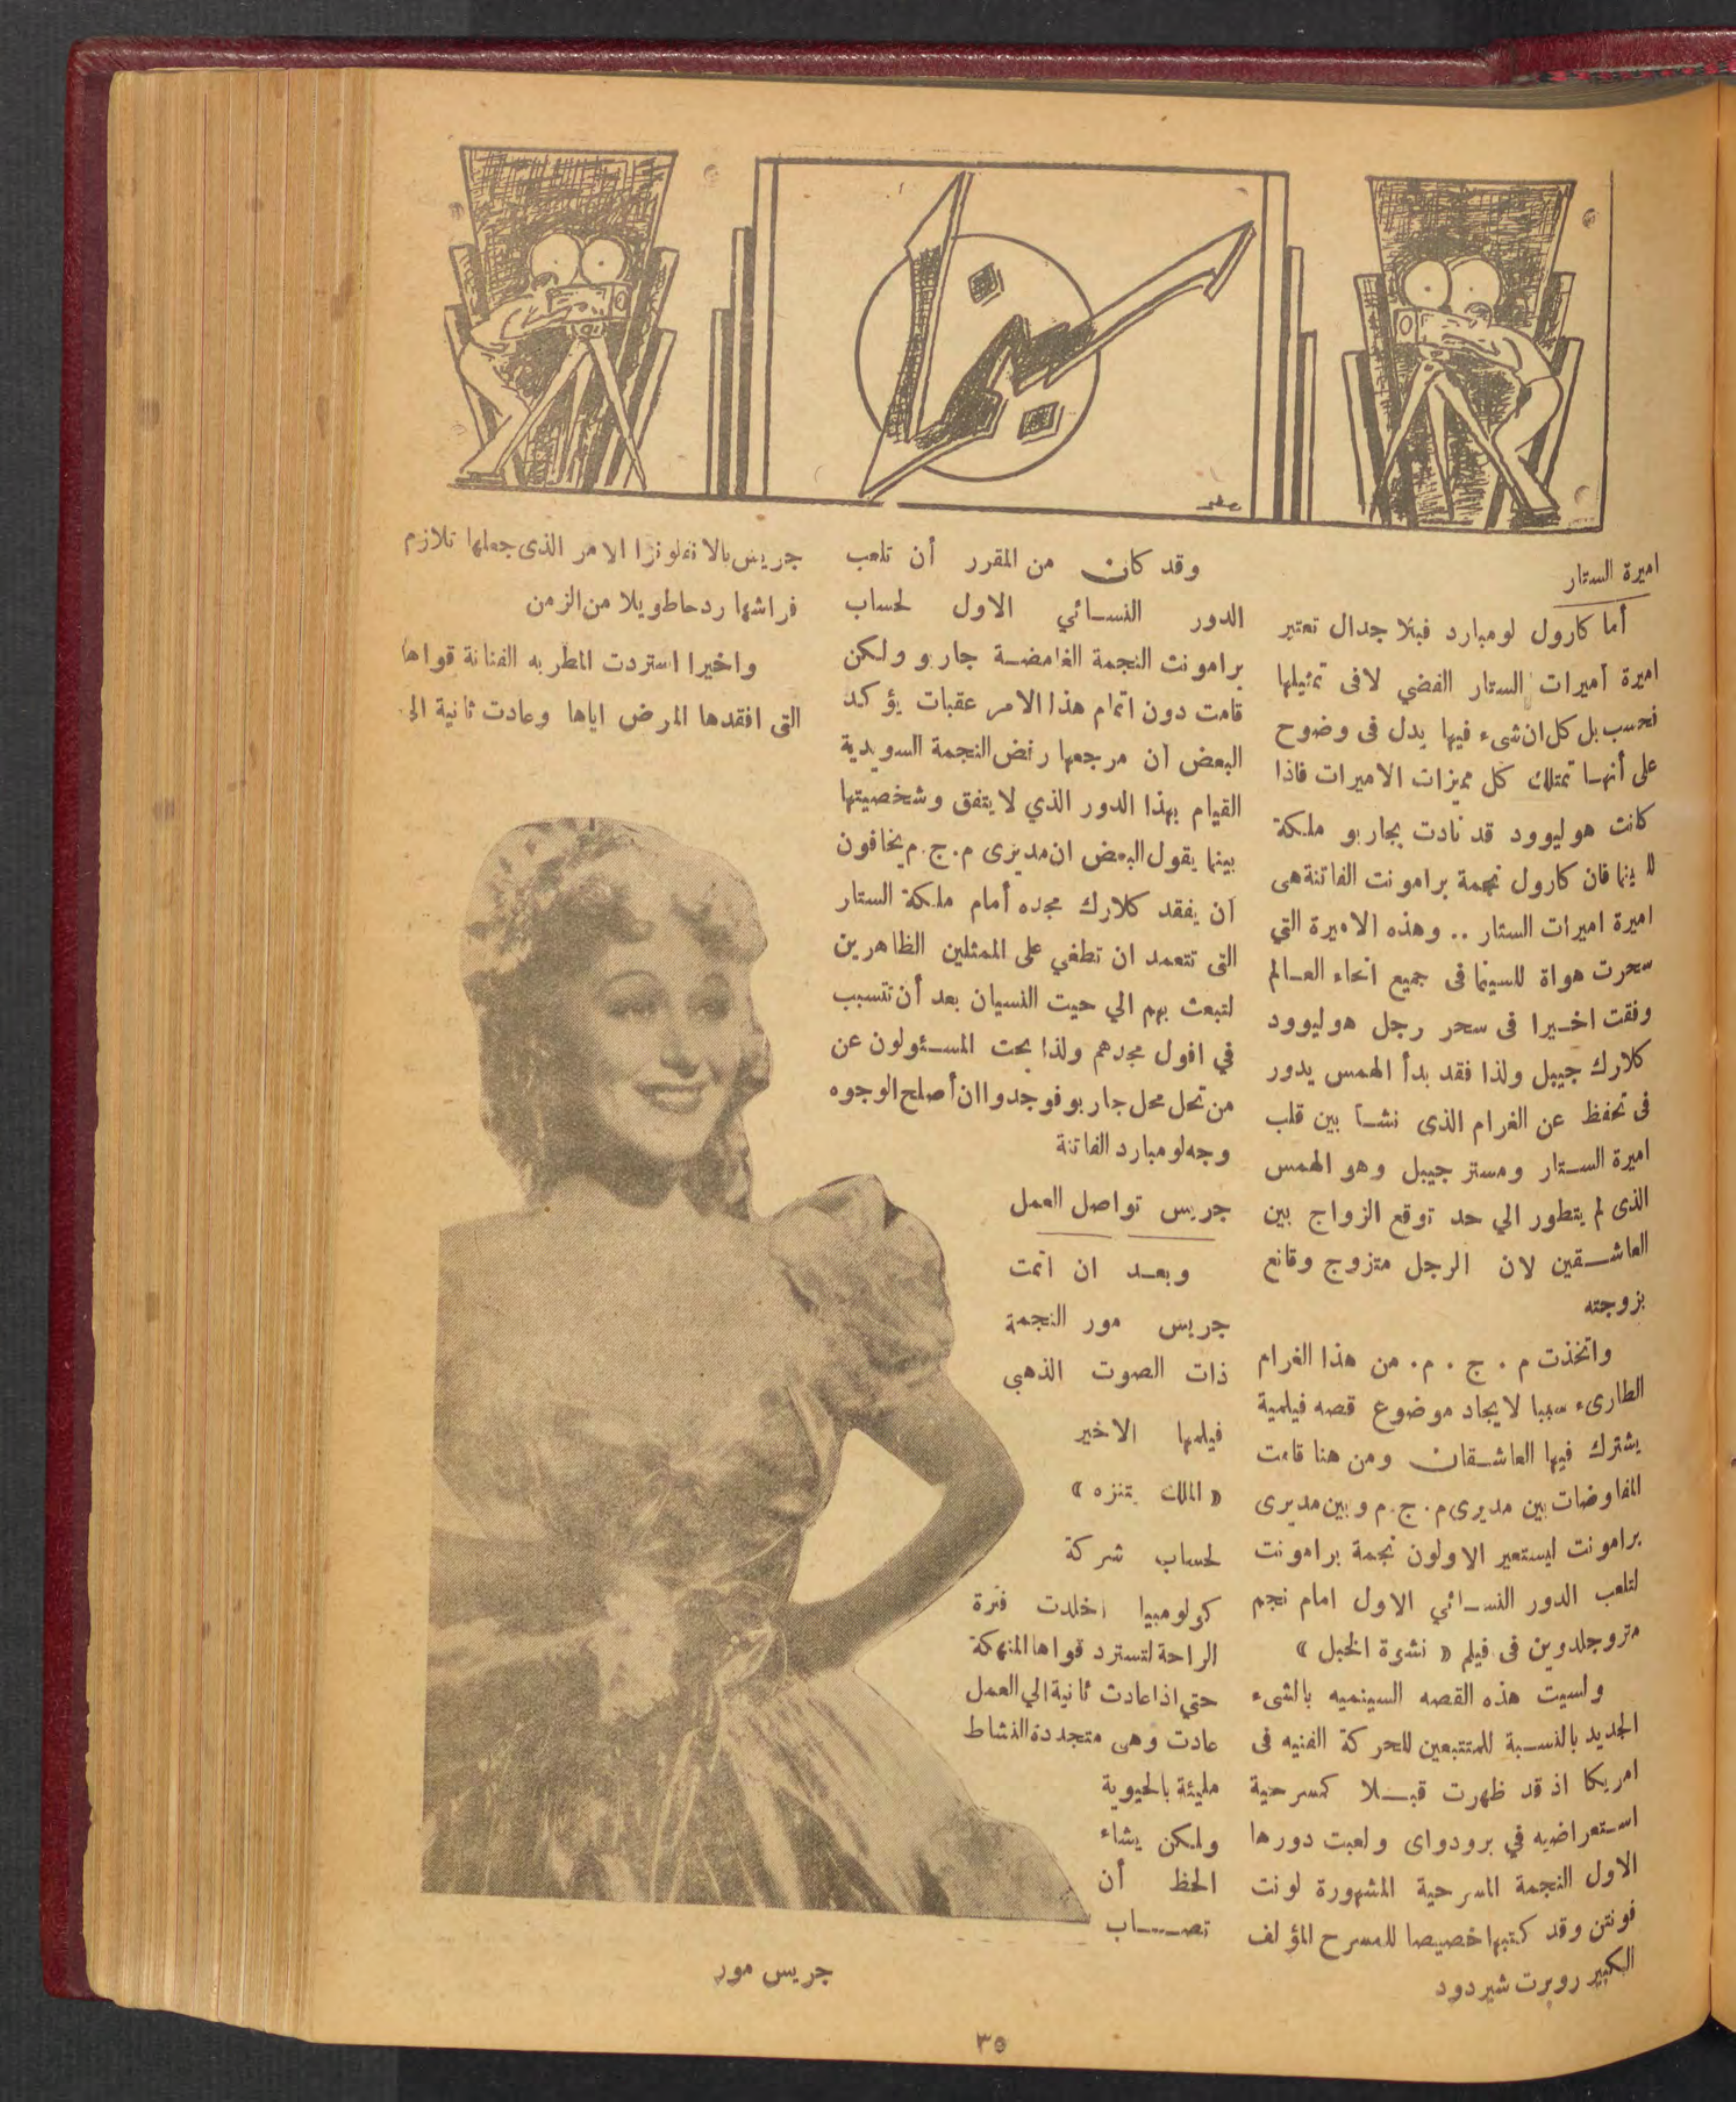 سينما
اميرة الستار
أما كارول لومبارد فبلا جدال تعتبر
اميرة أميرات الستار الفضي لا فى تمثيلها
فحسب بل كل ان شىء فيها يدل فى وضوح
على أنها تمتلك كل مميزات الاميرات فاذا
كانت هوليوود قد نادت بجاربو ملكة
فان كارول نجمة برامونت الفاتنة هى
اميرة اميرات الستار .. وهذه الاميرة التي
سحرت هواة للسينما فى جميع انحاء العالم
وفقت اخيرا فى سحر رجل هوليوود
كلارك جيبل ولذا فقد بدأ الهمس يدور
فى تحفظ عن الغرام الذى نشأ بين قلب
اميرة الستار ومستر جيبل وهو الهمس
الذى لم يتطور الي حد توقع الزواج بين
العاشقين لان الرجل متزوج وقانع
بزوجته
واتخذت م . ج . م . من هذا الغرام
الطارىء سببا لايجاد موضوع قصه فيلمية
يشترك فيها العاشقان ومن هنا قامت
المفاوضات بين مديرى م . ج . م وبين مديرى
برامونت ليستعير الاولون نجمة برامونت
لتلعب الدور النسائي الاول امام نجم
متروجلدوين فى فيلم « نشوة الخبل »
ولسيت هذه القصه السينميه بالشىء
الجديد بالنسبة للمتتبعين للحركة الفنيه فى
امريكا اذ قد ظهرت قبلا كمسرحية
استعراضيه في برودواى ولعبت دورها
الاول النجمة المسرحية المشهورة لونت
فونتن وقد كتبها خصيصا للمسرح المؤلف
الكبير روبرت شيردود
وقد كان من المقرر أن تلعب
الدور النسائي الاول لحساب
برامونت النجمة الغامضة جاربو ولكن
قامت دون اتمام هذا الامر عقبات يؤكد
البعض ان مرجعها رفض النجمة السويدية
القيام بهذا الدور الذي لا يتفق وشخصيتها
بينما يقول البعض ان مديرى م . ج . م يخافون
ان يفقد كلارك مجده أمام ملكة الستار
التى تتعمد ان تطغي على الممثلين الظاهرين
لتبعث بهم الي حيت النسيان بعد أن تتسبب
في افول مجدهم ولذا بحت المسئولون عن
من تحل محل جاربو فوجدوا ان أصلح الوجوه
وجه لومبارد الفاتنة
جريس تواصل العمل
وبعد ان اتمت
جريس مور النجمة
ذات الصوت الذهبى
فيلمها الاخير
« الملك يتنزه »
لحساب شركة
كولومبيا اخلدت فترة
الراحة لتسترد قواها المنهكة
حتي اذا عادت ثانية الي العمل
عادت وهى متجددة النشاط
مليئة بالحيوية
ولكن يشاء
الحظ أن
تصاب
جريس بالانفلونزا الامر الذى جعلها تلازم
فراشها ردحا طويلا من الزمن
واخيرا استردت المطربه الفنانة قواها
التى افقدها المرض اياها وعادت ثانية الى
جريس مور
٣٥